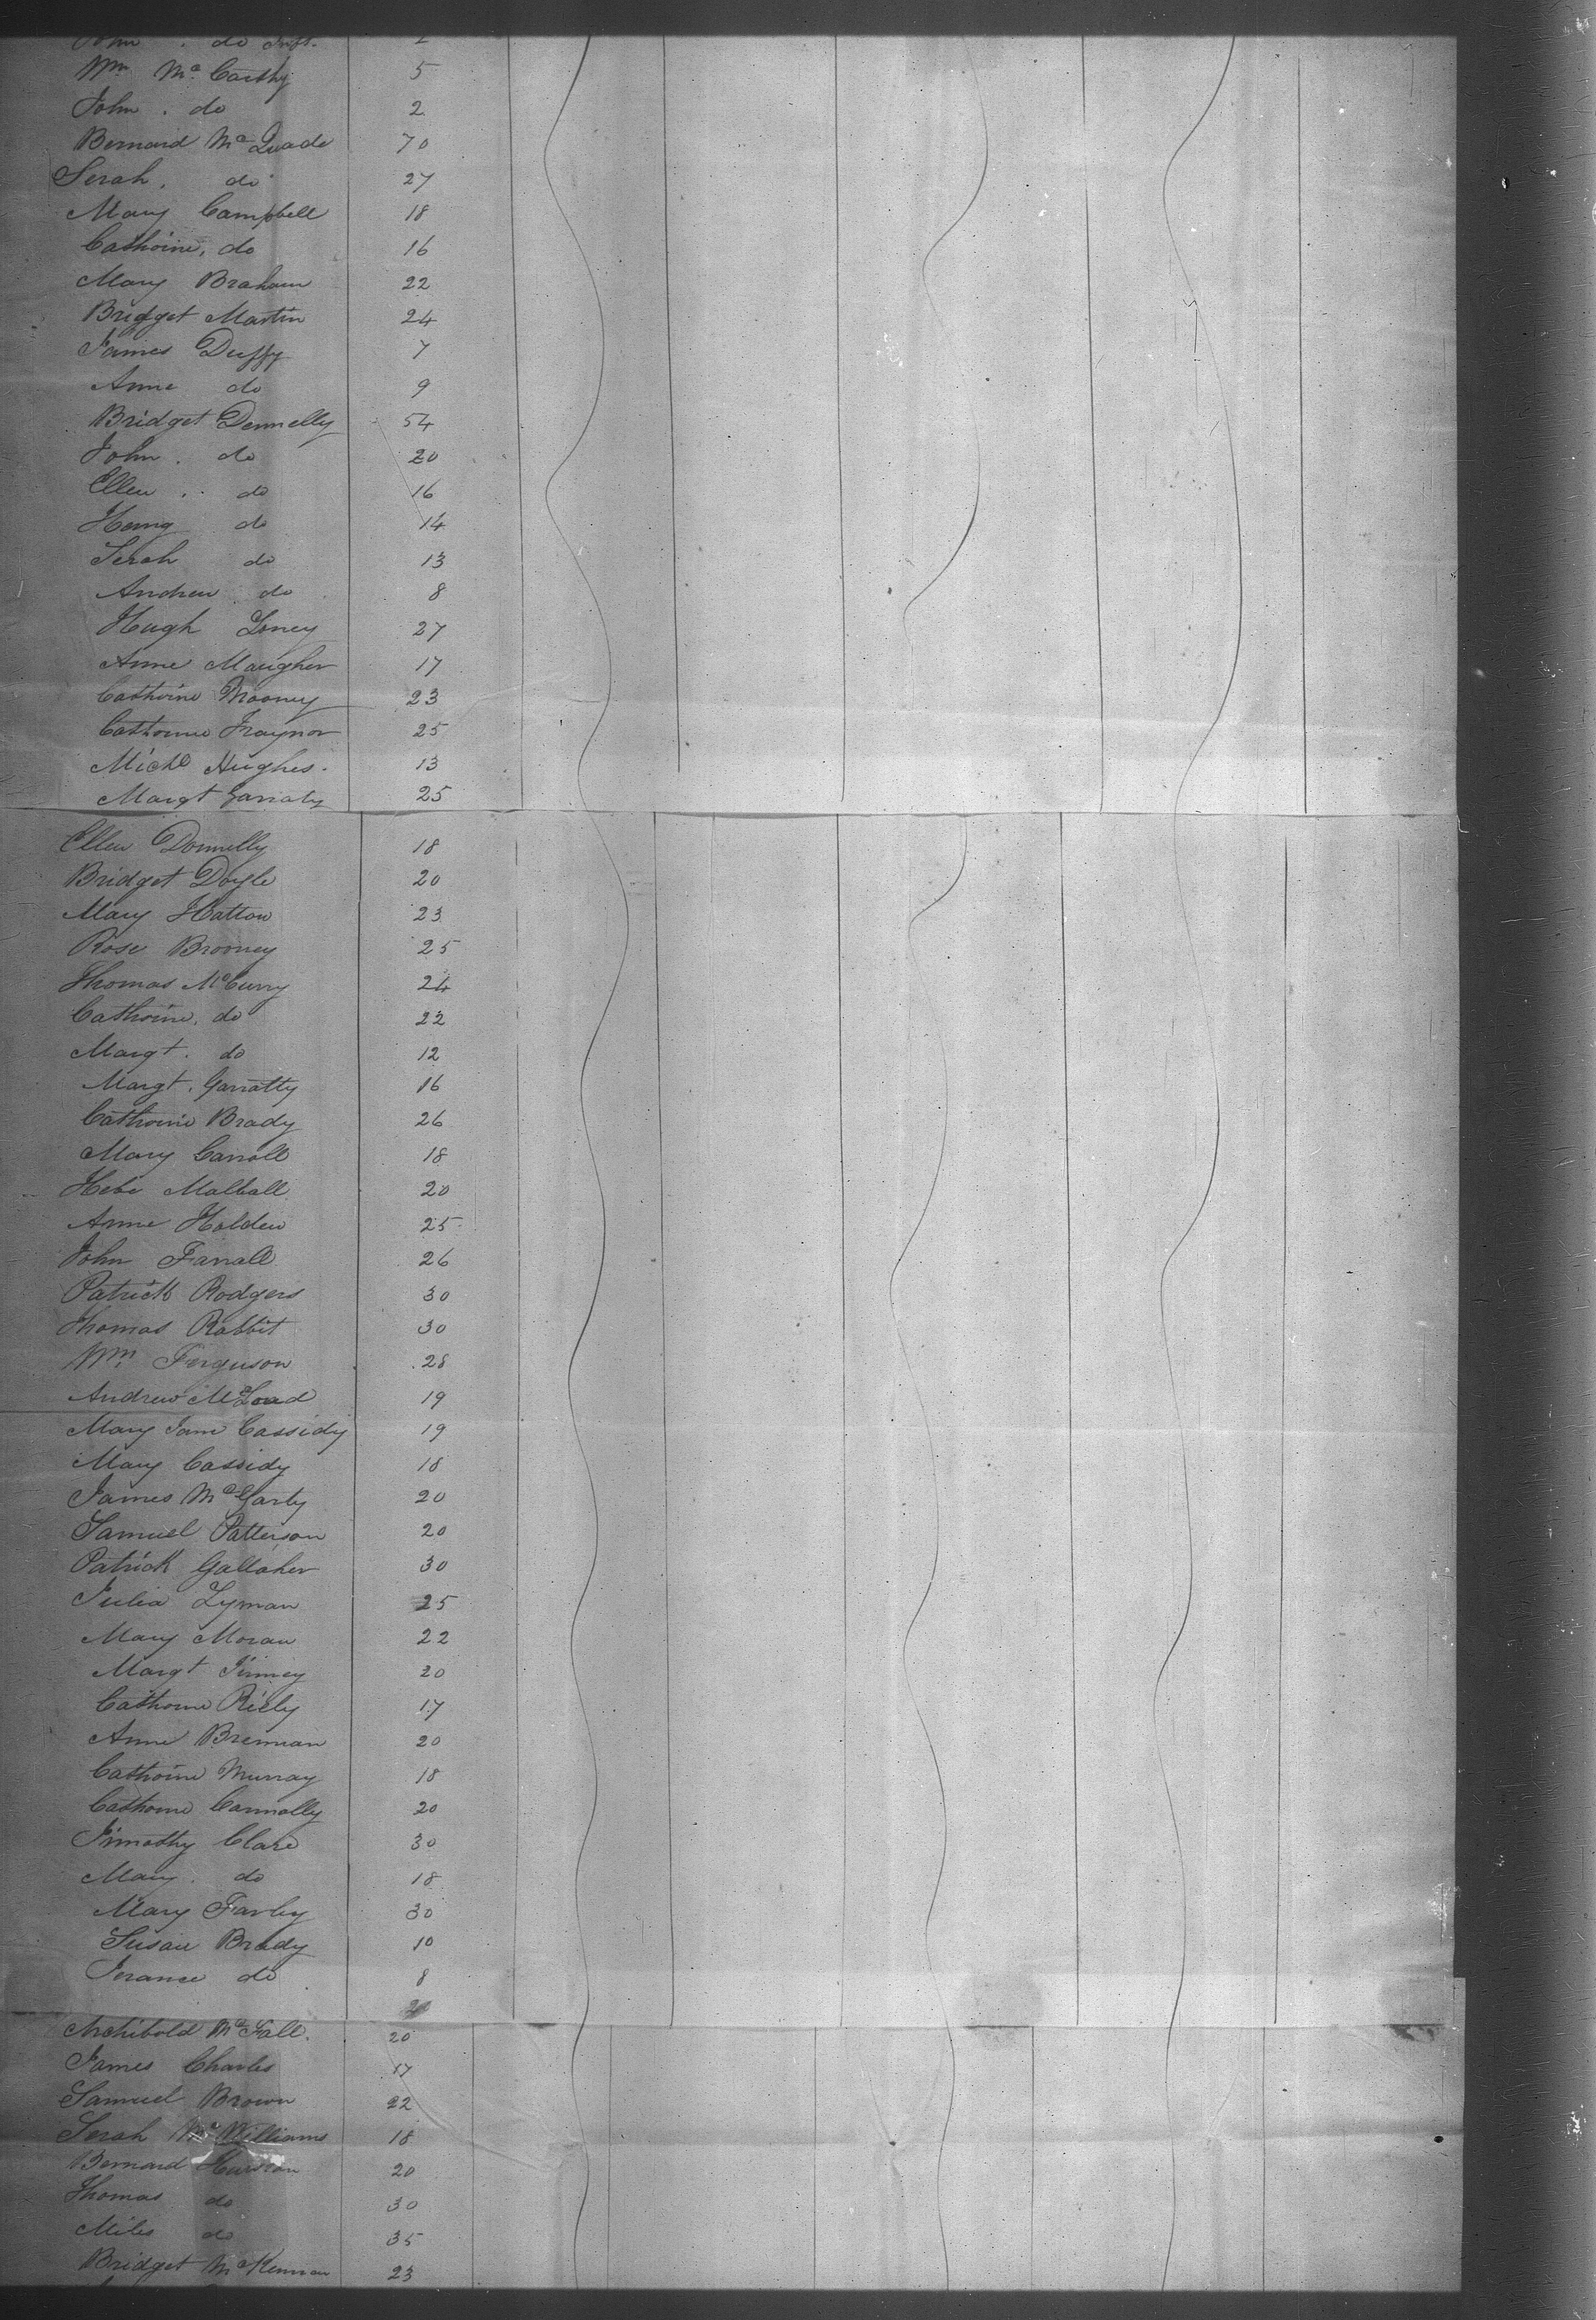 John . do Inft.
Wm Mc Carthy 5
John . do 2
Bernard Mc Quade 70
Serah . do 27
Mary Campbell 18
Cathrine, do 16
Mary Braham 22
Bridget Martin 24
James Duffy 7
Anne do 9
Bridget Donnelly 54
John . do 20
Ellen . do 16
Henry do 14
Serah do 13
Andrew do 8
Hugh Loney 27
Anne Maugher 17
Cathrine Mooney 23
Cathrine Traynor 25
Michl Hughes. 13
Margt Garraty 25
Ellen Donnelly 18
Bridget Doyle 20
Mary Hatton 23
Rose Brooney 25
Thomas McCurry 24
Cathrine, do 22
Margt. do 12
Margt. Garratty 16
Cathrine Brady 26
Mary Carroll 18
Hebe Malball 20
Anne Holden 25
John Farrall 26
Patrick Rodgers 30
Thomas Rabbit 30
Wm Ferguson 28
Andrew McLoud 19
Mary Jane Cassidy 19
Mary Cassidy 18
James McGarty 20
Samuel Patterson 20
Patrick Gallaher 30
Julia Lyman 25
Mary Moran 22
Margt Finney 20
Cathrine Riely 17
Anne Brennan 20
Cathrine Murray 18
Cathrine Connolly 20
Timothy Clare 30
Mary . do 18
Mary Farley 30
Susan Brady 10
Terance do 8
Archibold McFall. 20
James Charles 17
Samuel Brown 22
Serah McWilliams 18
Bernard 20
Thomas do 30
Miles do 35
Bridget McKennan 23